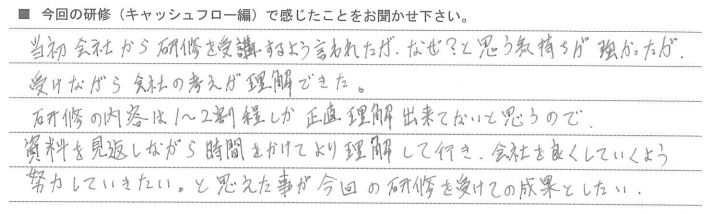 ■ 今回の研修（キャッシュフロー編）で感じたことをお聞かせ下さい。
当初会社から研修を受講するよう言われたが、なぜ？と思う気持ちが強かったが、
受けながら会社の考えが理解できた。
研修の内容は1〜2割程しか正直理解出来てないと思うので、
資料を見返しながら時間をかけてより理解して行き、会社を良くしていくよう
努力していきたい。と思えた事が今回の研修を受けての成果としたい.